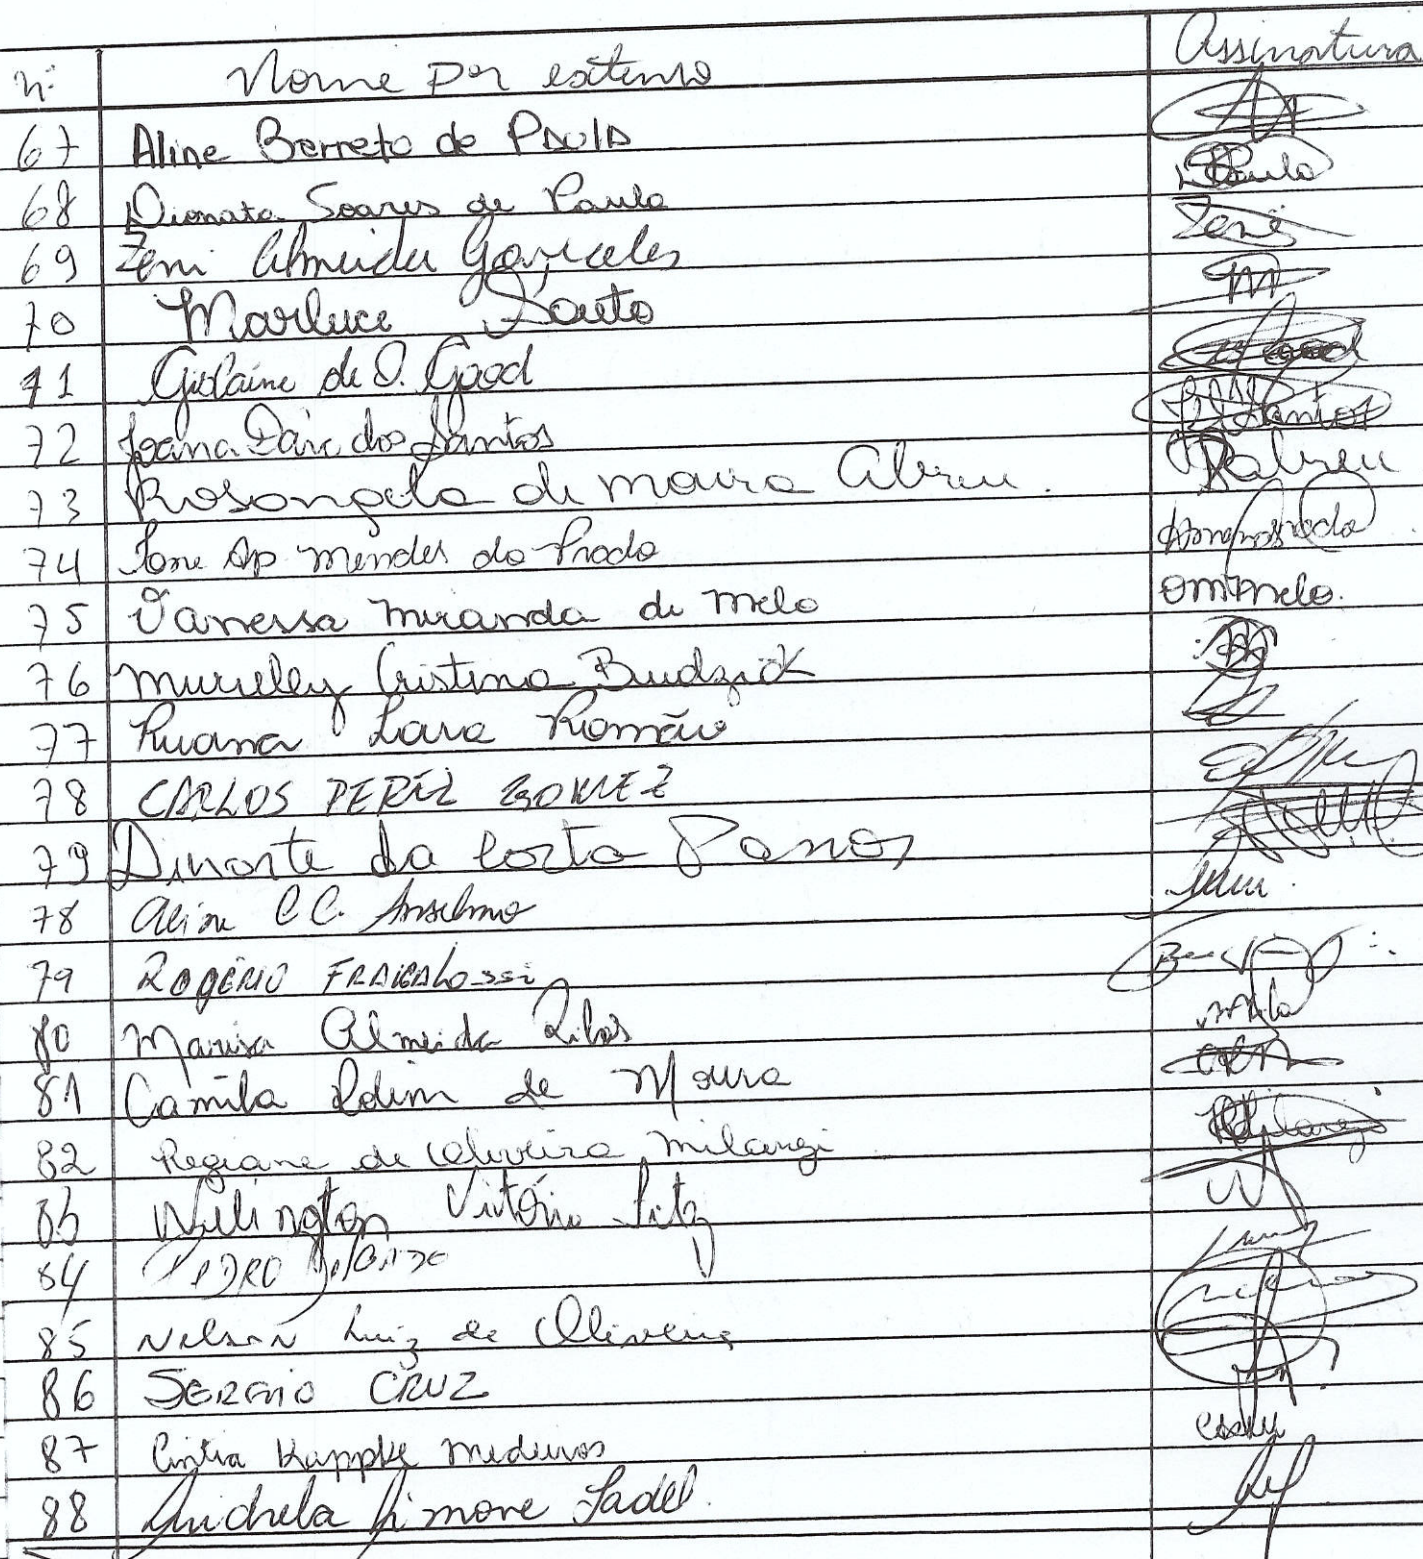 nº Nome por extenso Assinatura
67 Aline Berreto de Paula
68 Dionata Soares de Paula Paula
69 Zeni Almeida Gonçalves Zeni
70 Marluce Souto
71 Gislaine de O. Good Good
72 Joana Darc dos Santos Santos
73 Rosangela de Moura Abreu. RAbreu
74 Ione Ap Mendes do Prado
75 Vanessa Miranda de Melo Melo.
76 Murielly Cristina Budzick
77 Ruana Lara Romão
78 CARLOS PEREZ GOMEZ
79 Dinarte da Costa Passos
78 Aline C C. Anselmo
79 ROGÉRIO FRACALOSSI
80 Marisa Almeida
81 Camila Rolim de Moura
82 Regiane de Oliveira Milarezi
83 Welington Vitório
84 PEDRO
85 Nelson Luiz de Oliveira
86 SERGIO CRUZ
87 Cintia Kappke Medeiros
88 Simone Sadel.